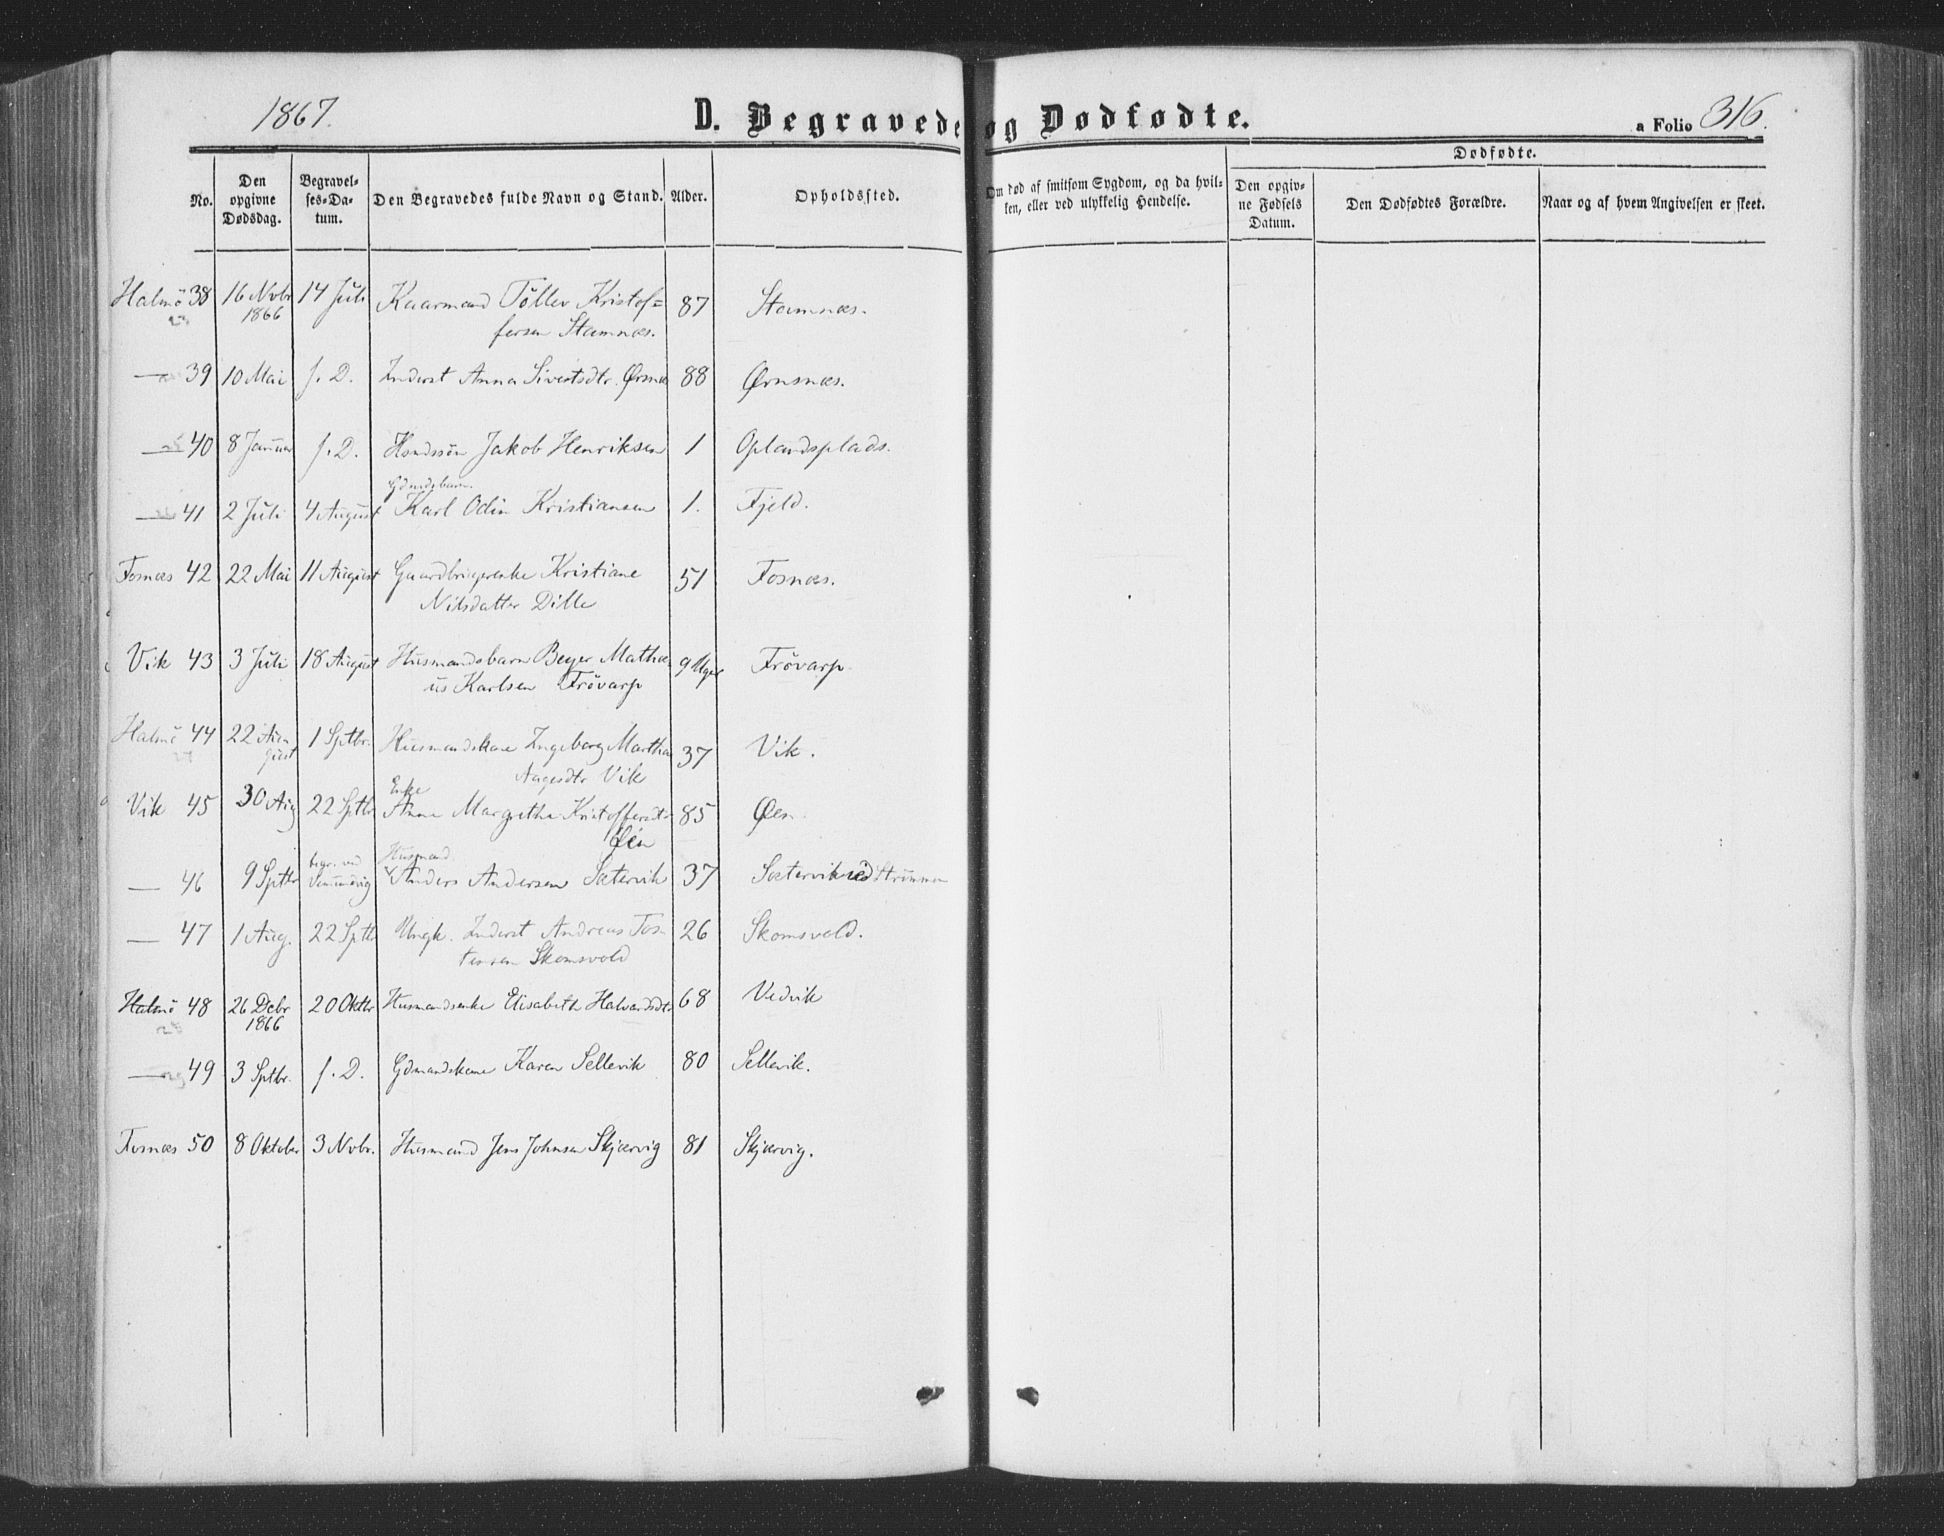 1867.
D. Begravede og Dødfødte.
a Folio 316.
No.
Den opgivne Dødsdag.
Begravelses-Datum.
Den Begravedes fulde Navn og Stand.
Alder.
Opholdssted.
Om død af smitsom Sygdom, og da hvilken, eller ved ulykkelig Hendelse.
Dødfødte.
Den opgivne Fødsels Datum.
Den Dødfødtes Forældre.
Naar og af hvem Angivelsen er skeet.
Halmö 38 16 Novbr 14 Juli Kaarmand Töllev Kristof= 87 Stamnæs.
1866 fersen Stamnæs.
— 39 10 Mai s. D. Inderst Anna Sivertsdtr. Ørsnæs 88 Ørnsnæs.
— 40 8 Januar s. D. Hsmdssön Jakob Henriksen 1 Oplandsplads.
Gdmdsbarn
— 41 2 Juli 4 August Karl Odin Kristiansen 1. Fjeld.
Fosnæs 42 22 Mai 11 August Gaardbrugerenke Kristiane 51 Fosnæs.
Nilsdatter Dille
Vik 43 3 Juli 18 August Husmandsbarn Beyer Mathæ- 9 Uger Frövarp.
us Karlsen Frövarp
Halmö 44 22 Au- 1 Sptbr. Husmandskone Ingeborg Martha 37 Vik.
gust Aagesdtr Vik
Enke
Vik 45 30 Aug 22 Sptbr Anne Margretha Kristoffersdtr 85 Øen
Øen
begr. ved Husmand
— 46 9 Sptbr Anders Andersen Sætervik 37 Sætervik ved Strömmen
— 47 1 Aug. 22 Sptbr Ungk. Inderst Andreas Tos- 26 Skomsvold.
tensen Skomsvold
Halmö 48 26 Debr 20 Oktbr Husmandsenke Elisabeth Halvardsdtr 68 Vedvik
1866
— 49 3 Sptbr. s. D. Gdmandskone Karen Sellevik 80 Sellevik.
Fosnæs 50 8 Oktober 3 Novbr. Husmand Jens Johnsen Skjærvig 81 Skjærvig.